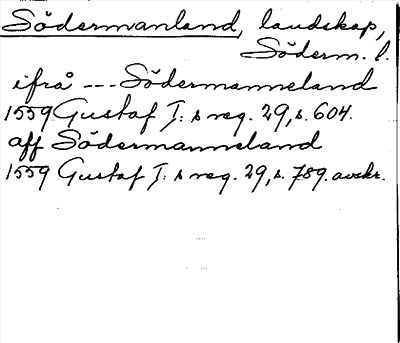 Södermanland, landskap,
Söderm. l.
ifrå --- Södermanneland
1559 Gustaf I: s reg. 29, s. 604.
aff Södermanneland
1559 Gustaf I: s reg. 29, s. 789. avskr.